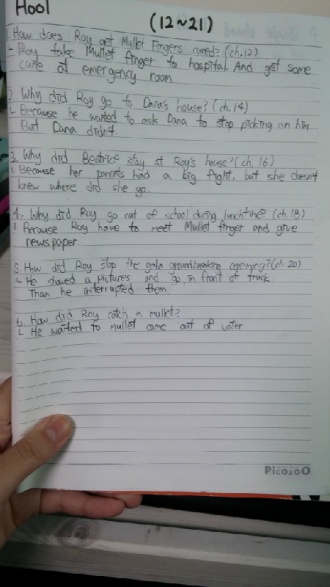 Hoot
(12~21)
1. How does Roy get Mullet Fingers cured? (ch.12)
└ Roy take Mullet finger to hospital And get some
cure at emergency room
2. Why did Roy go to Dana's house? (ch.14)
└ Because he wanted to ask Dana to stop picking on him
But Dana didn't
3. Why did Beatrice stay at Roy's house? (ch.16)
└ Because her parents had a big fight, but she doesn't
knew where did she go
4. Why did Roy go out of school during lunchtime? (ch.18)
└ Because Roy have to meet Mullet finger and give
news paper
5. How did Roy stop the gala groundbreaking (ch.20)
└ He showed a Pictures and go in front of truck
Than he interrupted them.
6. How did Roy catch a mullet?
└ He waited to mullet come out of water
PicasoO